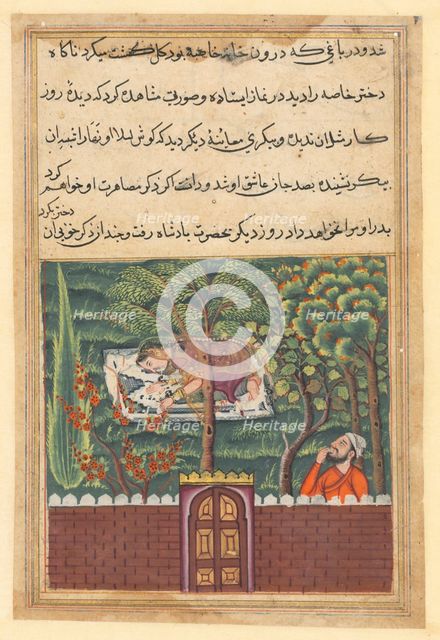 شد و در باغی که درون خانهٔ خاصه بود کل کشت میکرد ناکاه
دختر خاصه را دید در نماز ایستاده و صورتی مشاهده کرد که دیدهٔ روز
کار مثل آن ندیده و پیکری معاینهٔ دیگر دید که کوش لیل و نهار
پیکر نشنیده بصد جان عاشق او شد و دانست کرد کر مصاهرت او خواهم کرد
دختر بکرد
بدر او مرا نخواهد داد روز دیگر بحضرت بادشاه رفت و چند از ذکر خوبی آن
Heritage
Heritage
Heritage
Heritage
Heritage
Heritage
Heritage
Heritage